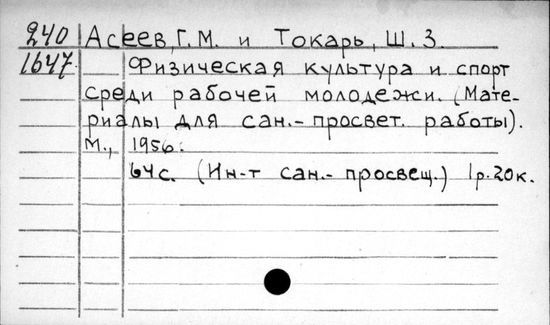 240 Асеев, Г. М. и Токарь, Ш. З.
1647 Физическая культура и спорт
среди рабочей молодежи. (Мате-
риалы для сан.- просвет. работы).
М., 1956.
64с. (Ин-т сан.- просвещ.) 1р.20к.